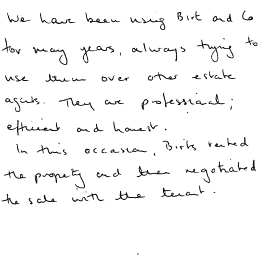 We have been using Birt and Co
for many years, always trying to
use them over other estate
agents. They are professional;
efficient and honest.
In this occasion, Birts rented
the property and then negotiated
the sale with the tenant.